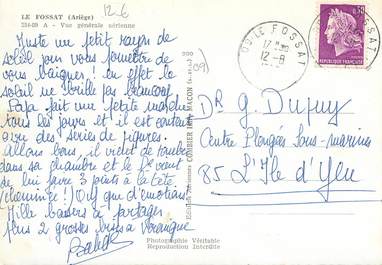 LE FOSSAT (Ariège)
234-09 A - Vue générale aérienne
12-6
Juste un petit rayon de
soleil pour vous permettre de
vous baigner ! en effet le
soleil ne brille pas beaucoup
Papa fait une petite marche
tous les jours et il est content
avec des séries de piqures.
Allons bon, il vient de tomber
dans sa chambre et le Dr vient
de lui faire 3 points à la tête
(cheminée !) Ouf que d'émotions
Mille baisers à partager
plus 2 grosses bises à Véronique
200
(09)
Édition COMBIER IMP. MACON
Photographie Véritable
Reproduction Interdite
09 LE FOSSAT
17 H
12-8
0.30
REPUBLIQUE FRANÇAISE
Dr G. Dupuy
Centre Plongées Sous-marines
85 L'Ile d'Yeu